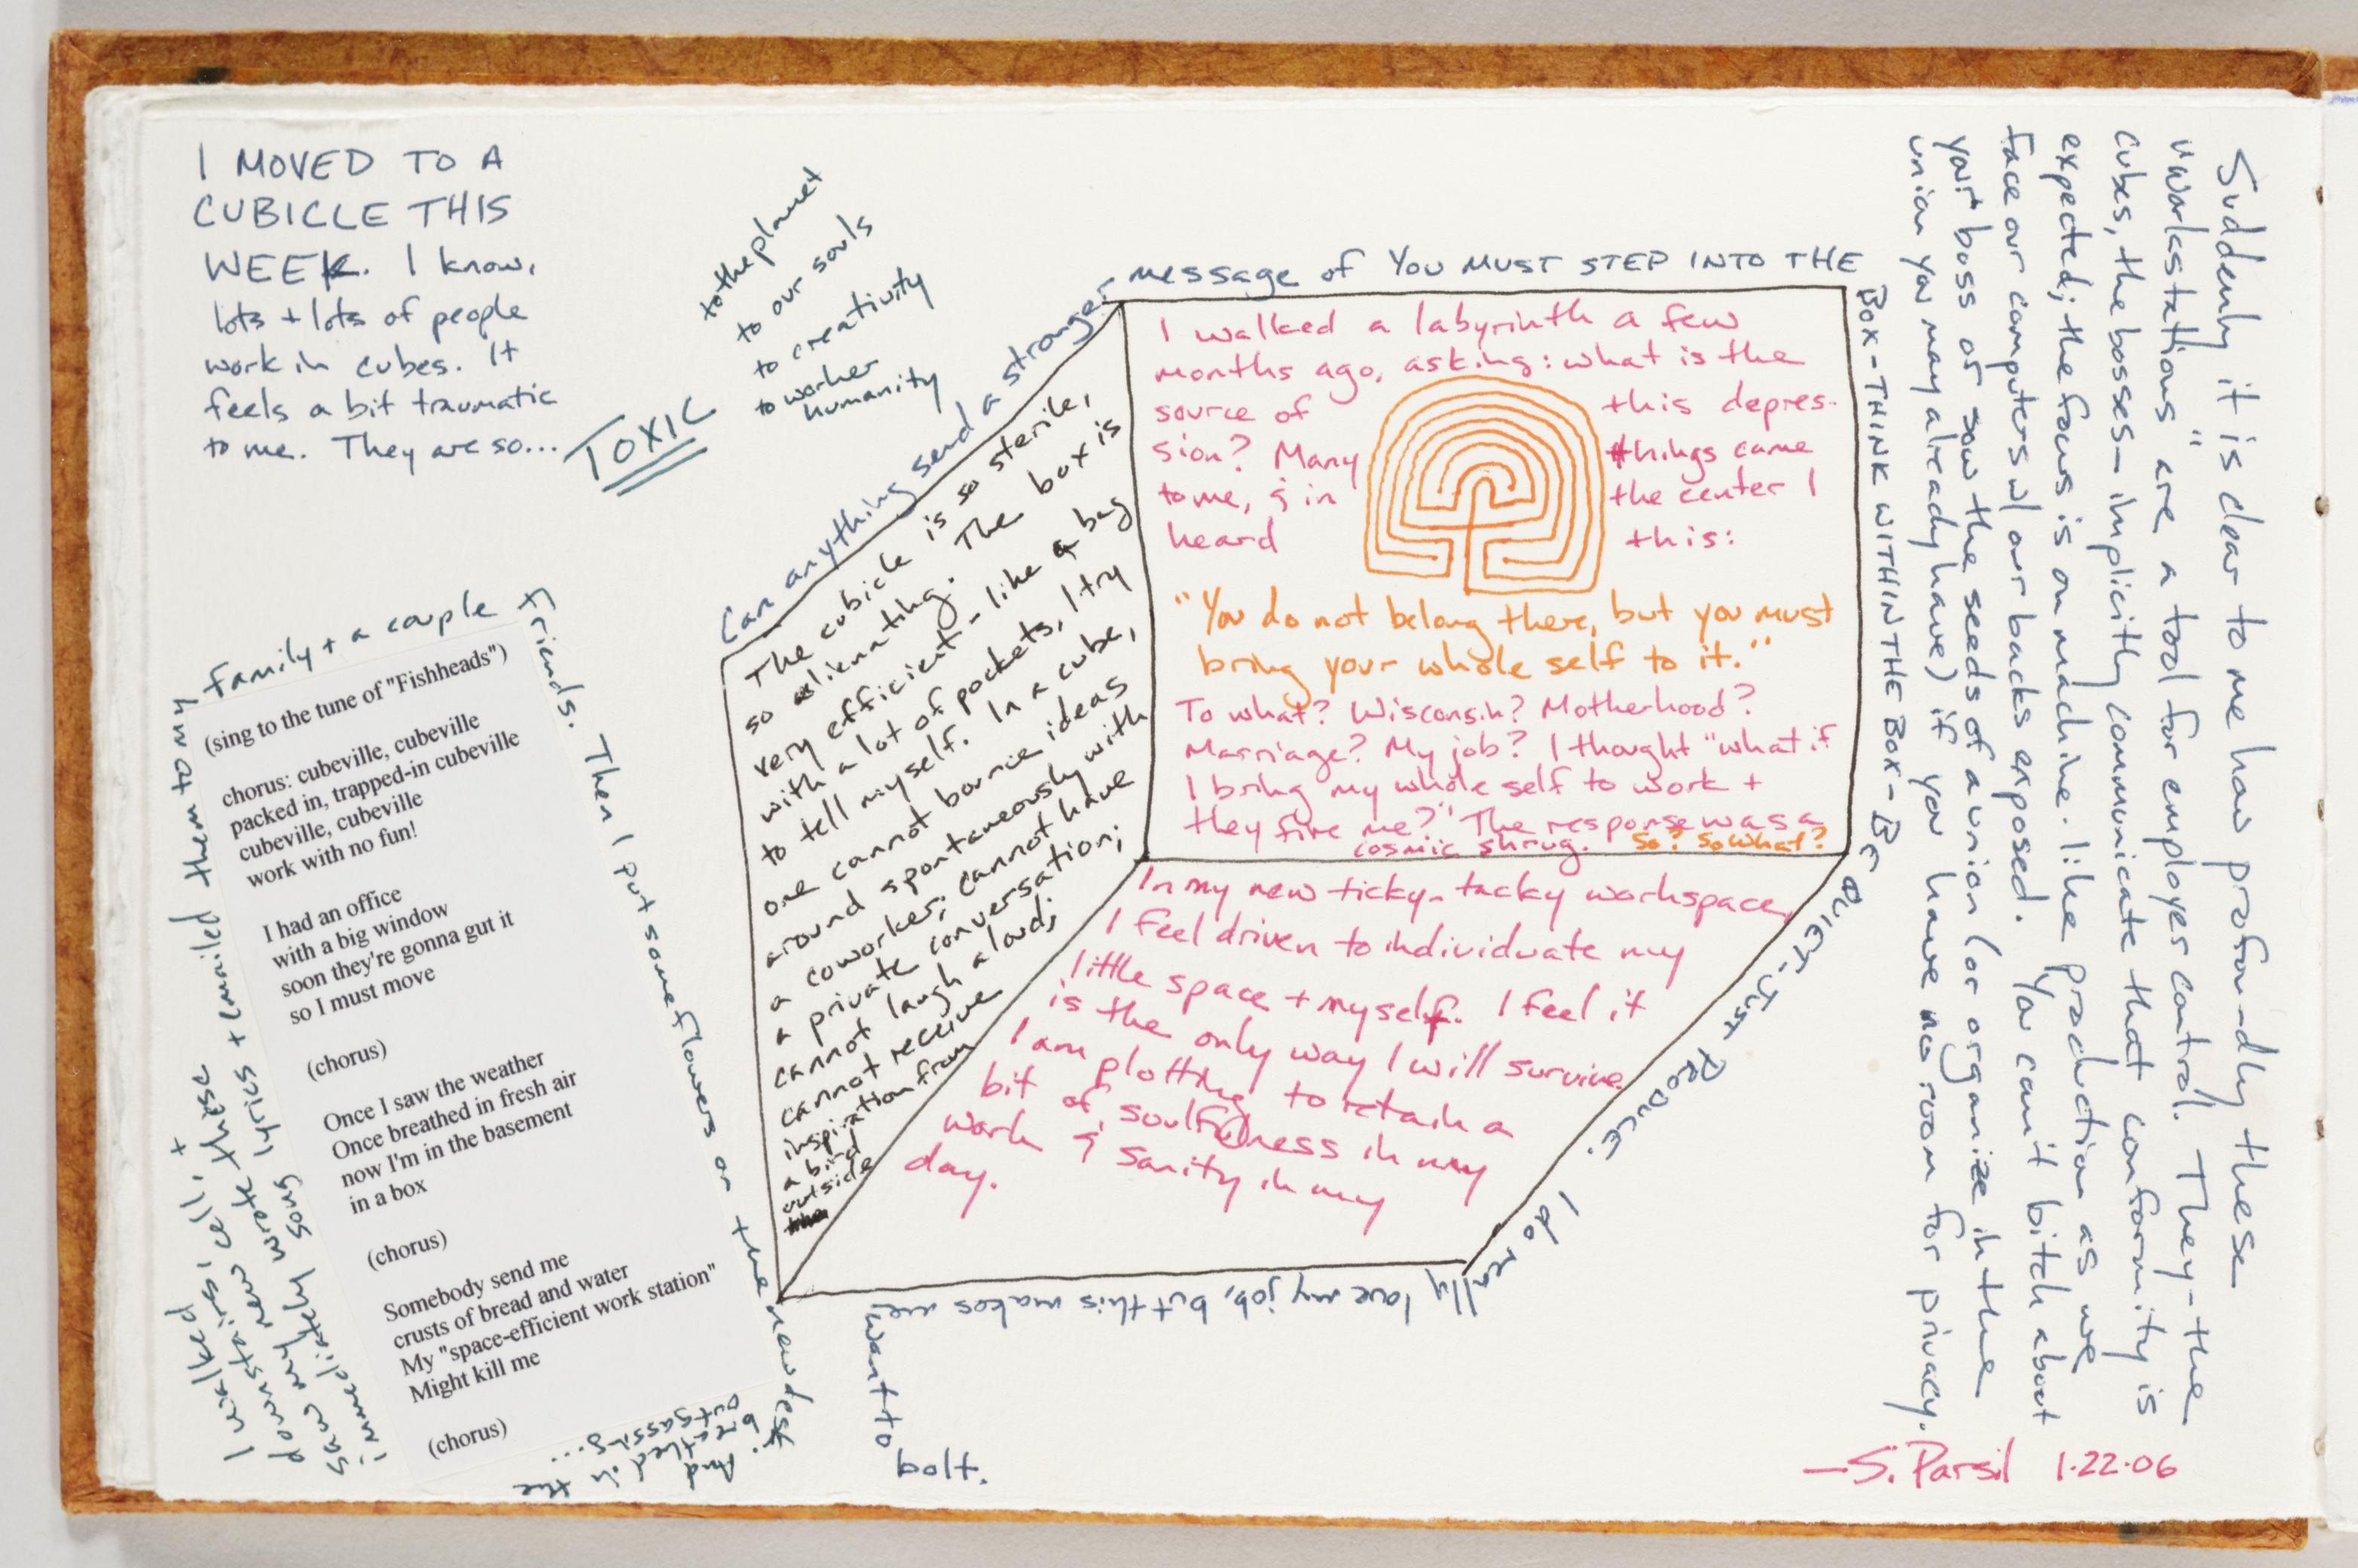 I MOVED TO A
CUBICLE THIS
WEEK. I know,
lots + lots of people
work in cubes. It
feels a bit traumatic
to me. They are so...
TOXIC
to the planet
to our souls
to creativity
to worker
humanity
I walked
downstairs; cell; +
saw my news wrote these
immediately song lyrics + emailed them to my
family + a couple
friends. Then I put some flowers on the new desk.
And
breathed in the
outgassing...
(sing to the tune of "Fishheads")
chorus: cubeville, cubeville
packed in, trapped-in cubeville
cubeville, cubeville
work with no fun!
I had an office
with a big window
soon they're gonna gut it
so I must move
(chorus)
Once I saw the weather
Once breathed in fresh air
now I'm in the basement
in a box
(chorus)
Somebody send me
crusts of bread and water
My "space-efficient work station"
Might kill me
(chorus)
Can anything send a stronger
message of YOU MUST STEP INTO THE
BOX-THINK WITHIN THE BOX-BE QUIET-JUST PRODUCE.
I do really love my job, but this makes me
want to
bolt.
The cubicle is so sterile,
so alienating. The box is
very efficient - like a bag
with a lot of pockets, I try
to tell myself. In a cube,
one cannot bounce ideas
around spontaneously with
a coworker; cannot have
a private conversation;
cannot laugh aloud;
cannot receive
inspiration from
a bird
outside
I walked a labyrinth a few
months ago, asking: what is the
source of this depres-
sion? Many things came
to me, & in the center I
heard this:
"You do not belong there, but you must
bring your whole self to it."
To what? Wisconsin? Motherhood?
Marriage? My job? I thought "what if
I bring my whole self to work +
they fire me?" The response was a
cosmic shrug. So? So what?
In my new ticky-tacky workspace,
I feel driven to individuate my
little space + myself. I feel it
is the only way I will survive.
I am plotting to retain a
bit of soulfulness in my
work & sanity in my
day.
Suddenly it is clear to me how profoundly these
"workstations" are a tool for employer control. They-the
cubes, the bosses-implicitly communicate that conformity is
expected; the focus is on machine-like production as we
face our computers w/ our backs exposed. You can't bitch about
your boss or sow the seeds of a union (or organize in the
union you may already have) if you have no room for privacy.
-S. Parsil 1.22.06